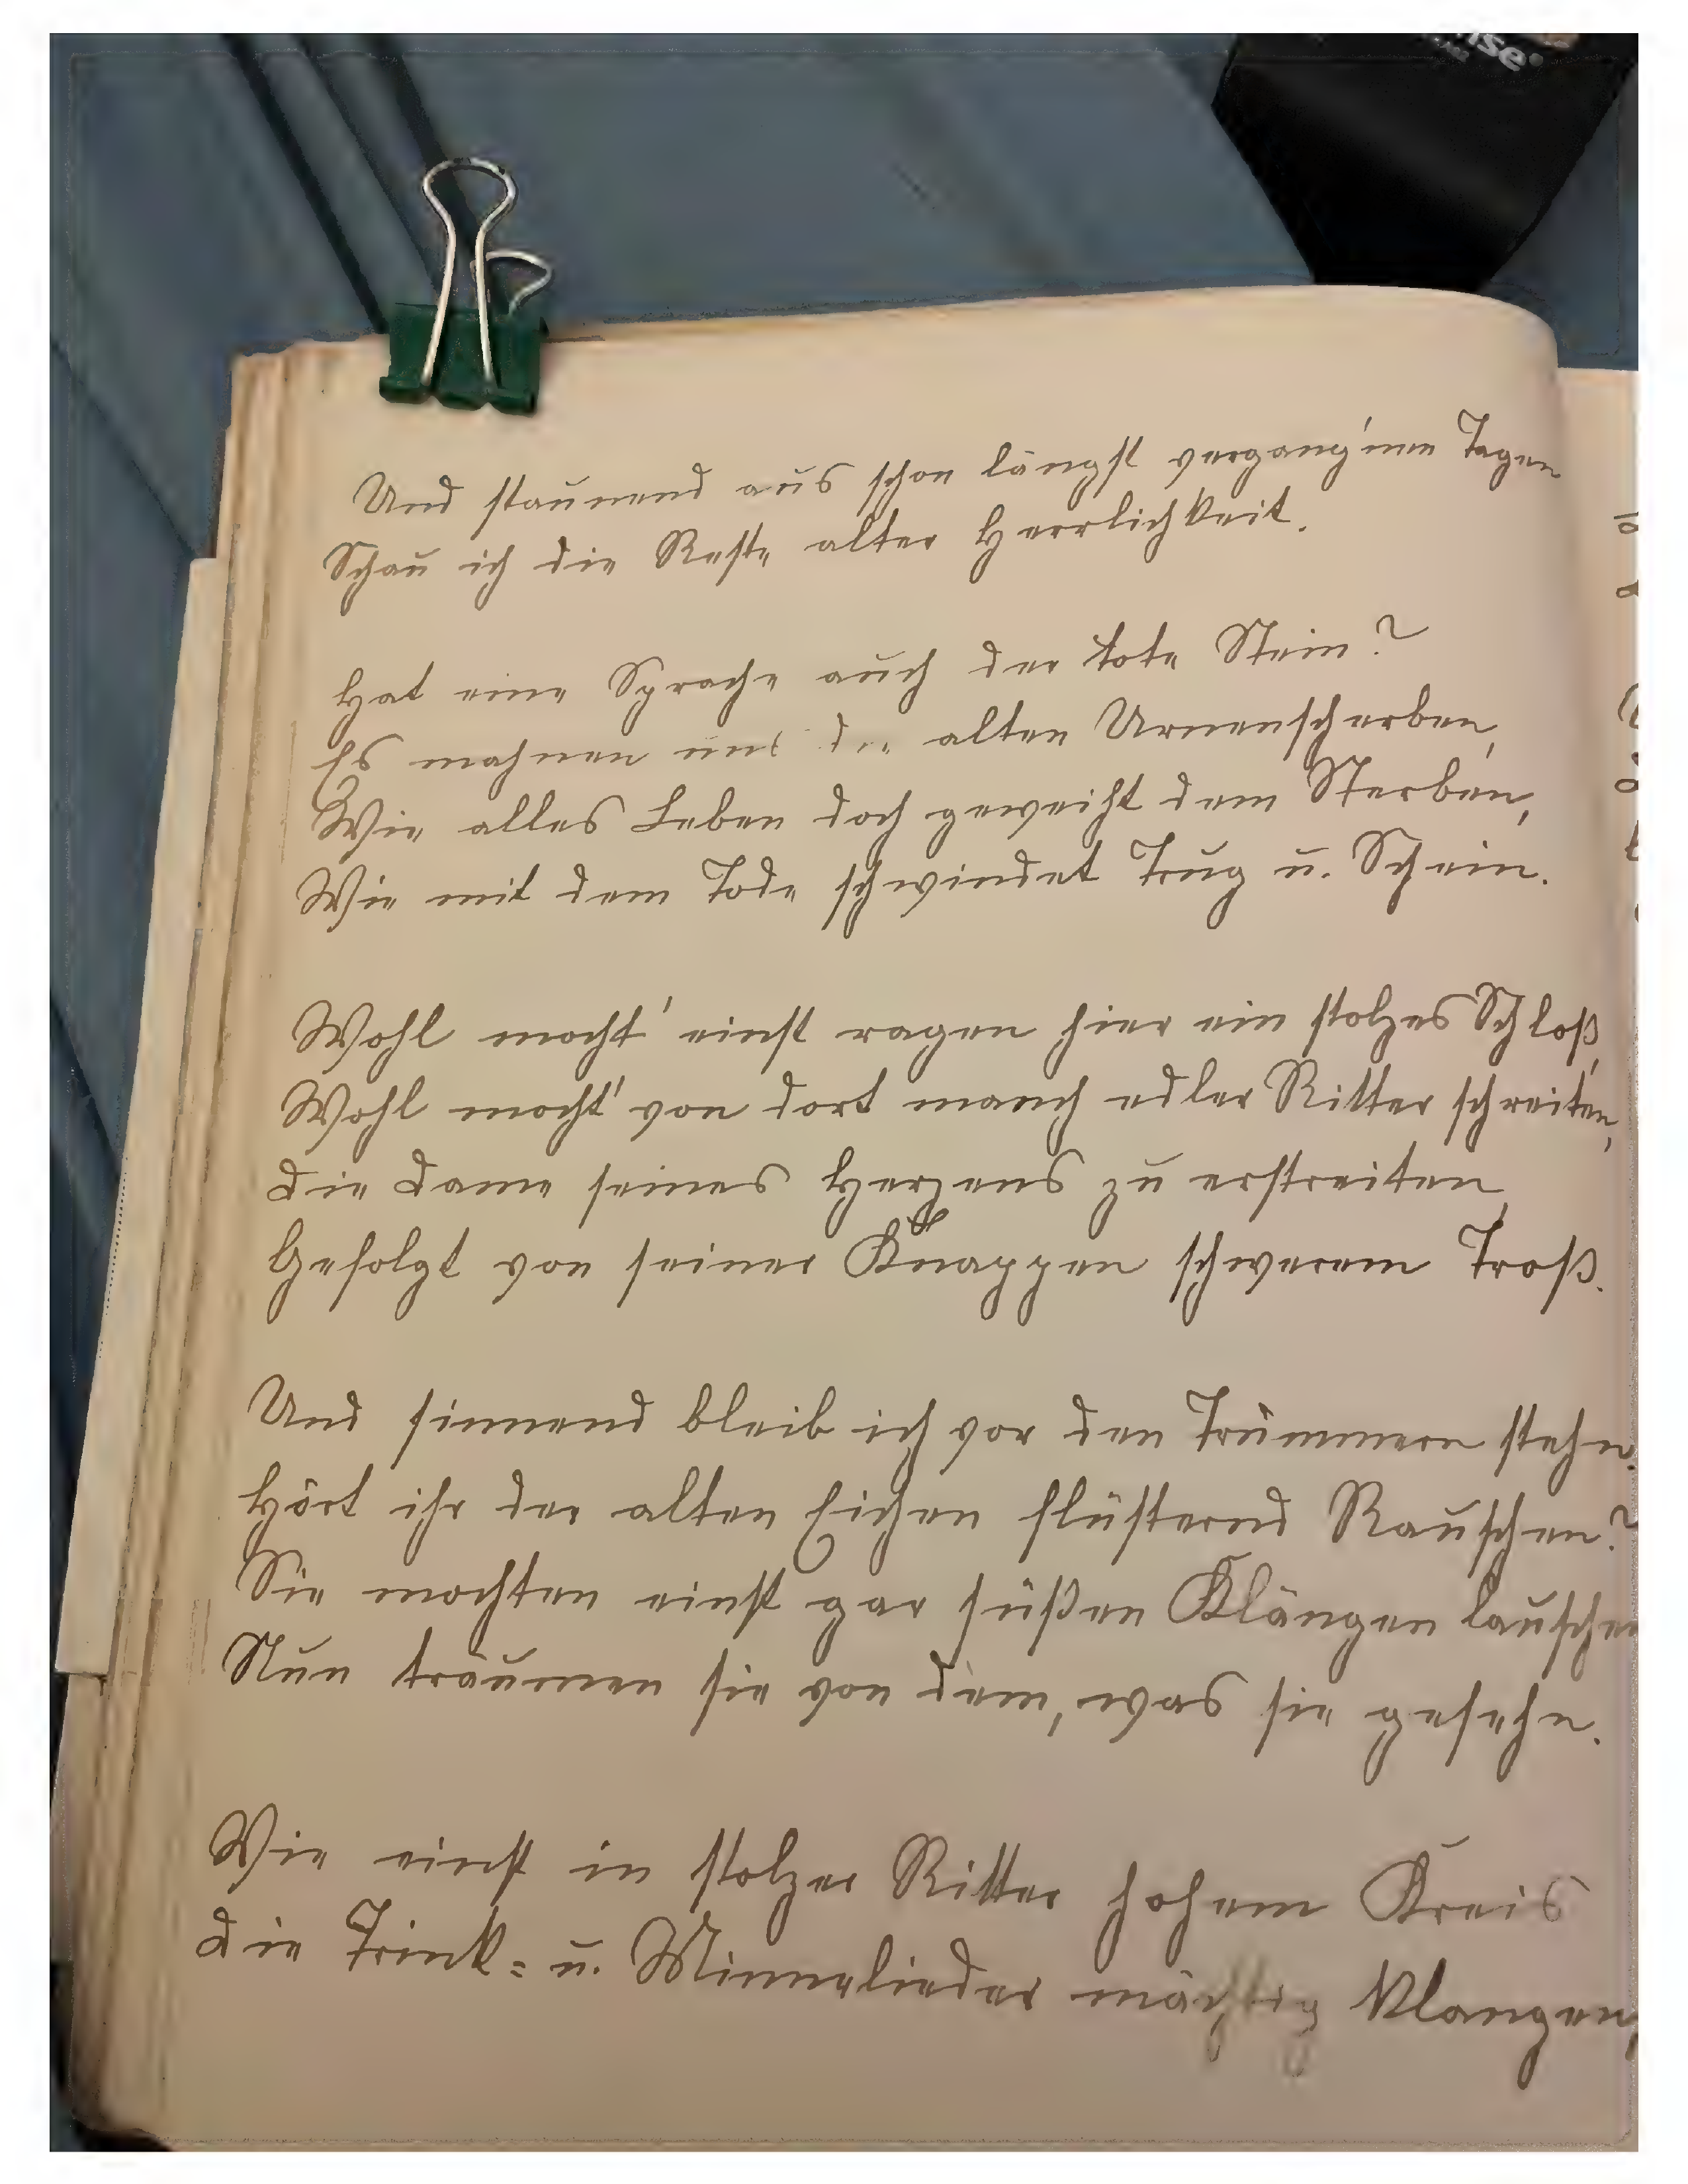 Und staunend aus schon längst vergang'nen Tagen
Schau ich die Reste alter Herrlichkeit.
Hat eine Sprache auch der tote Stein?
Es mahnen uns die alten Urnenscherben,
Wie alles Leben doch geweiht dem Sterben,
Wie mit dem Tode schwindet Trug u. Schein.
Wohl mocht' einst ragen hier ein stolzes Schloß,
Wohl mocht' von dort manch edler Ritter schreiten,
Die Dame seines Herzens zu erstreiten,
Gefolgt von seiner Knappen schwerem Troß.
Und sinnend bleib ich vor den Trümmern stehn.
Hört ihr der alten Eichen flüsternd Rauschen?
Sie mochten einst gar süßen Klängen lauschen
Nun träumen sie von dem, was sie gesehn.
Wie einst in stolzer Ritter hohem Kreis
Die Trink= u. Minnelieder mächtig klangen,